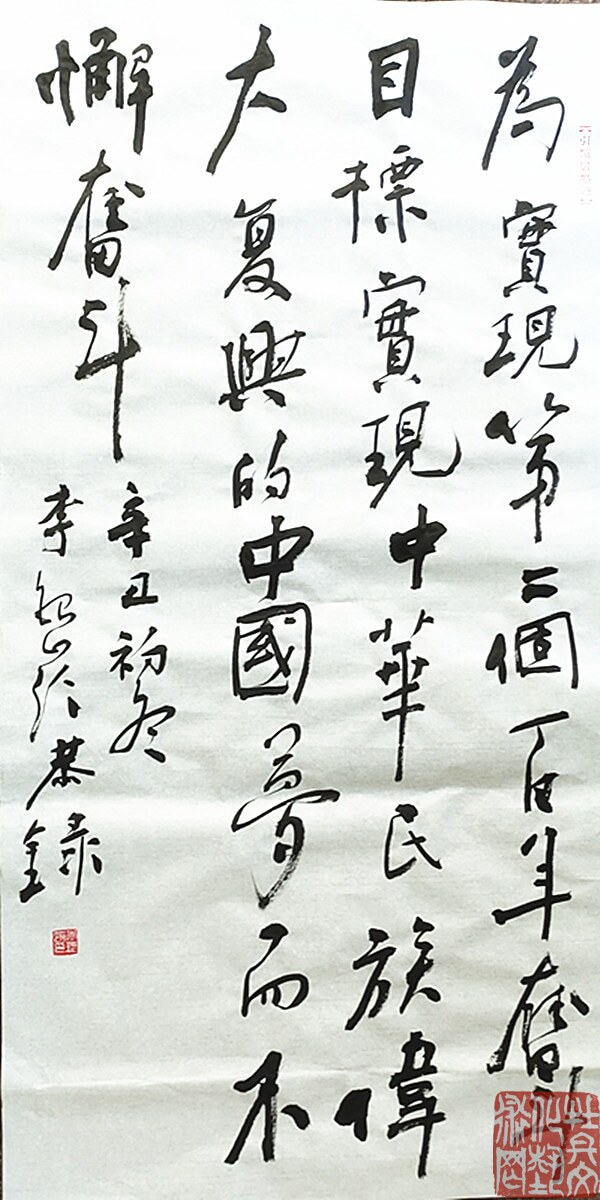 為實現第二個百年奮斗
目標實現中華民族偉
大復興的中國夢而不
懈奮斗
辛丑初冬
李
恭錄